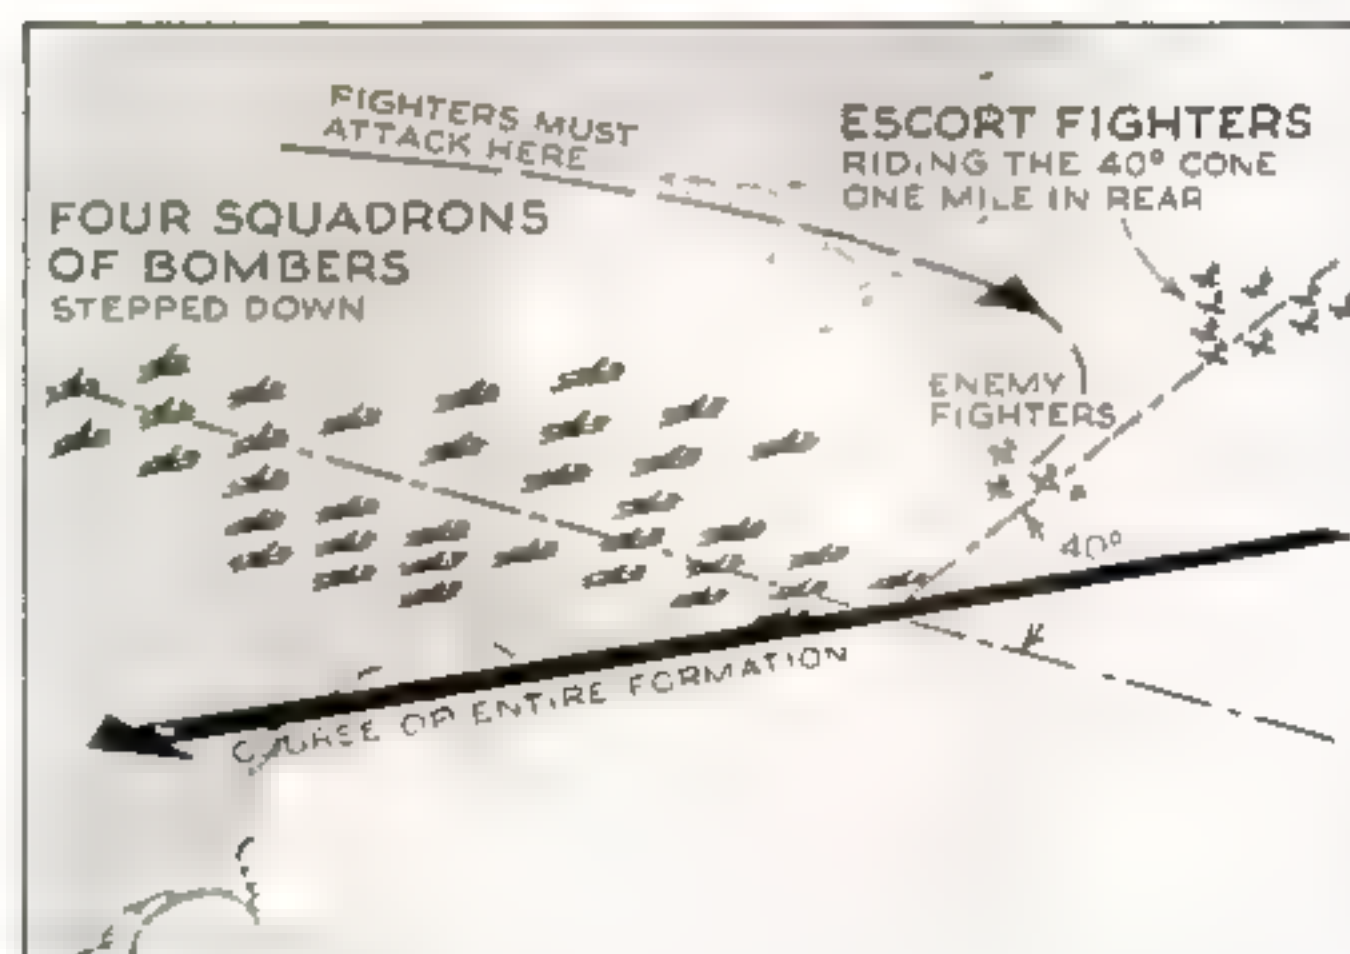 FIGHTERS MUST
ATTACK HERE
ESCORT FIGHTERS
RIDING THE 40° CONE
ONE MILE IN REAR
FOUR SQUADRONS
OF BOMBERS
STEPPED DOWN
ENEMY
FIGHTERS
40°
COURSE OF ENTIRE FORMATION